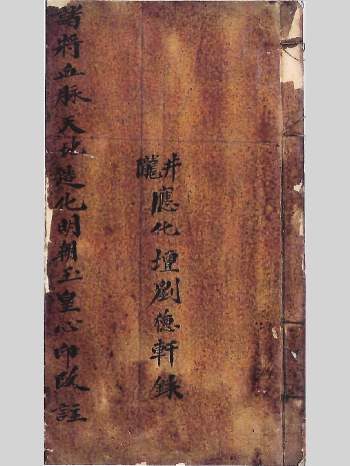 井隴應化壇劉德軒錄
諸將血脈天地造化明朝玉皇心印臥註